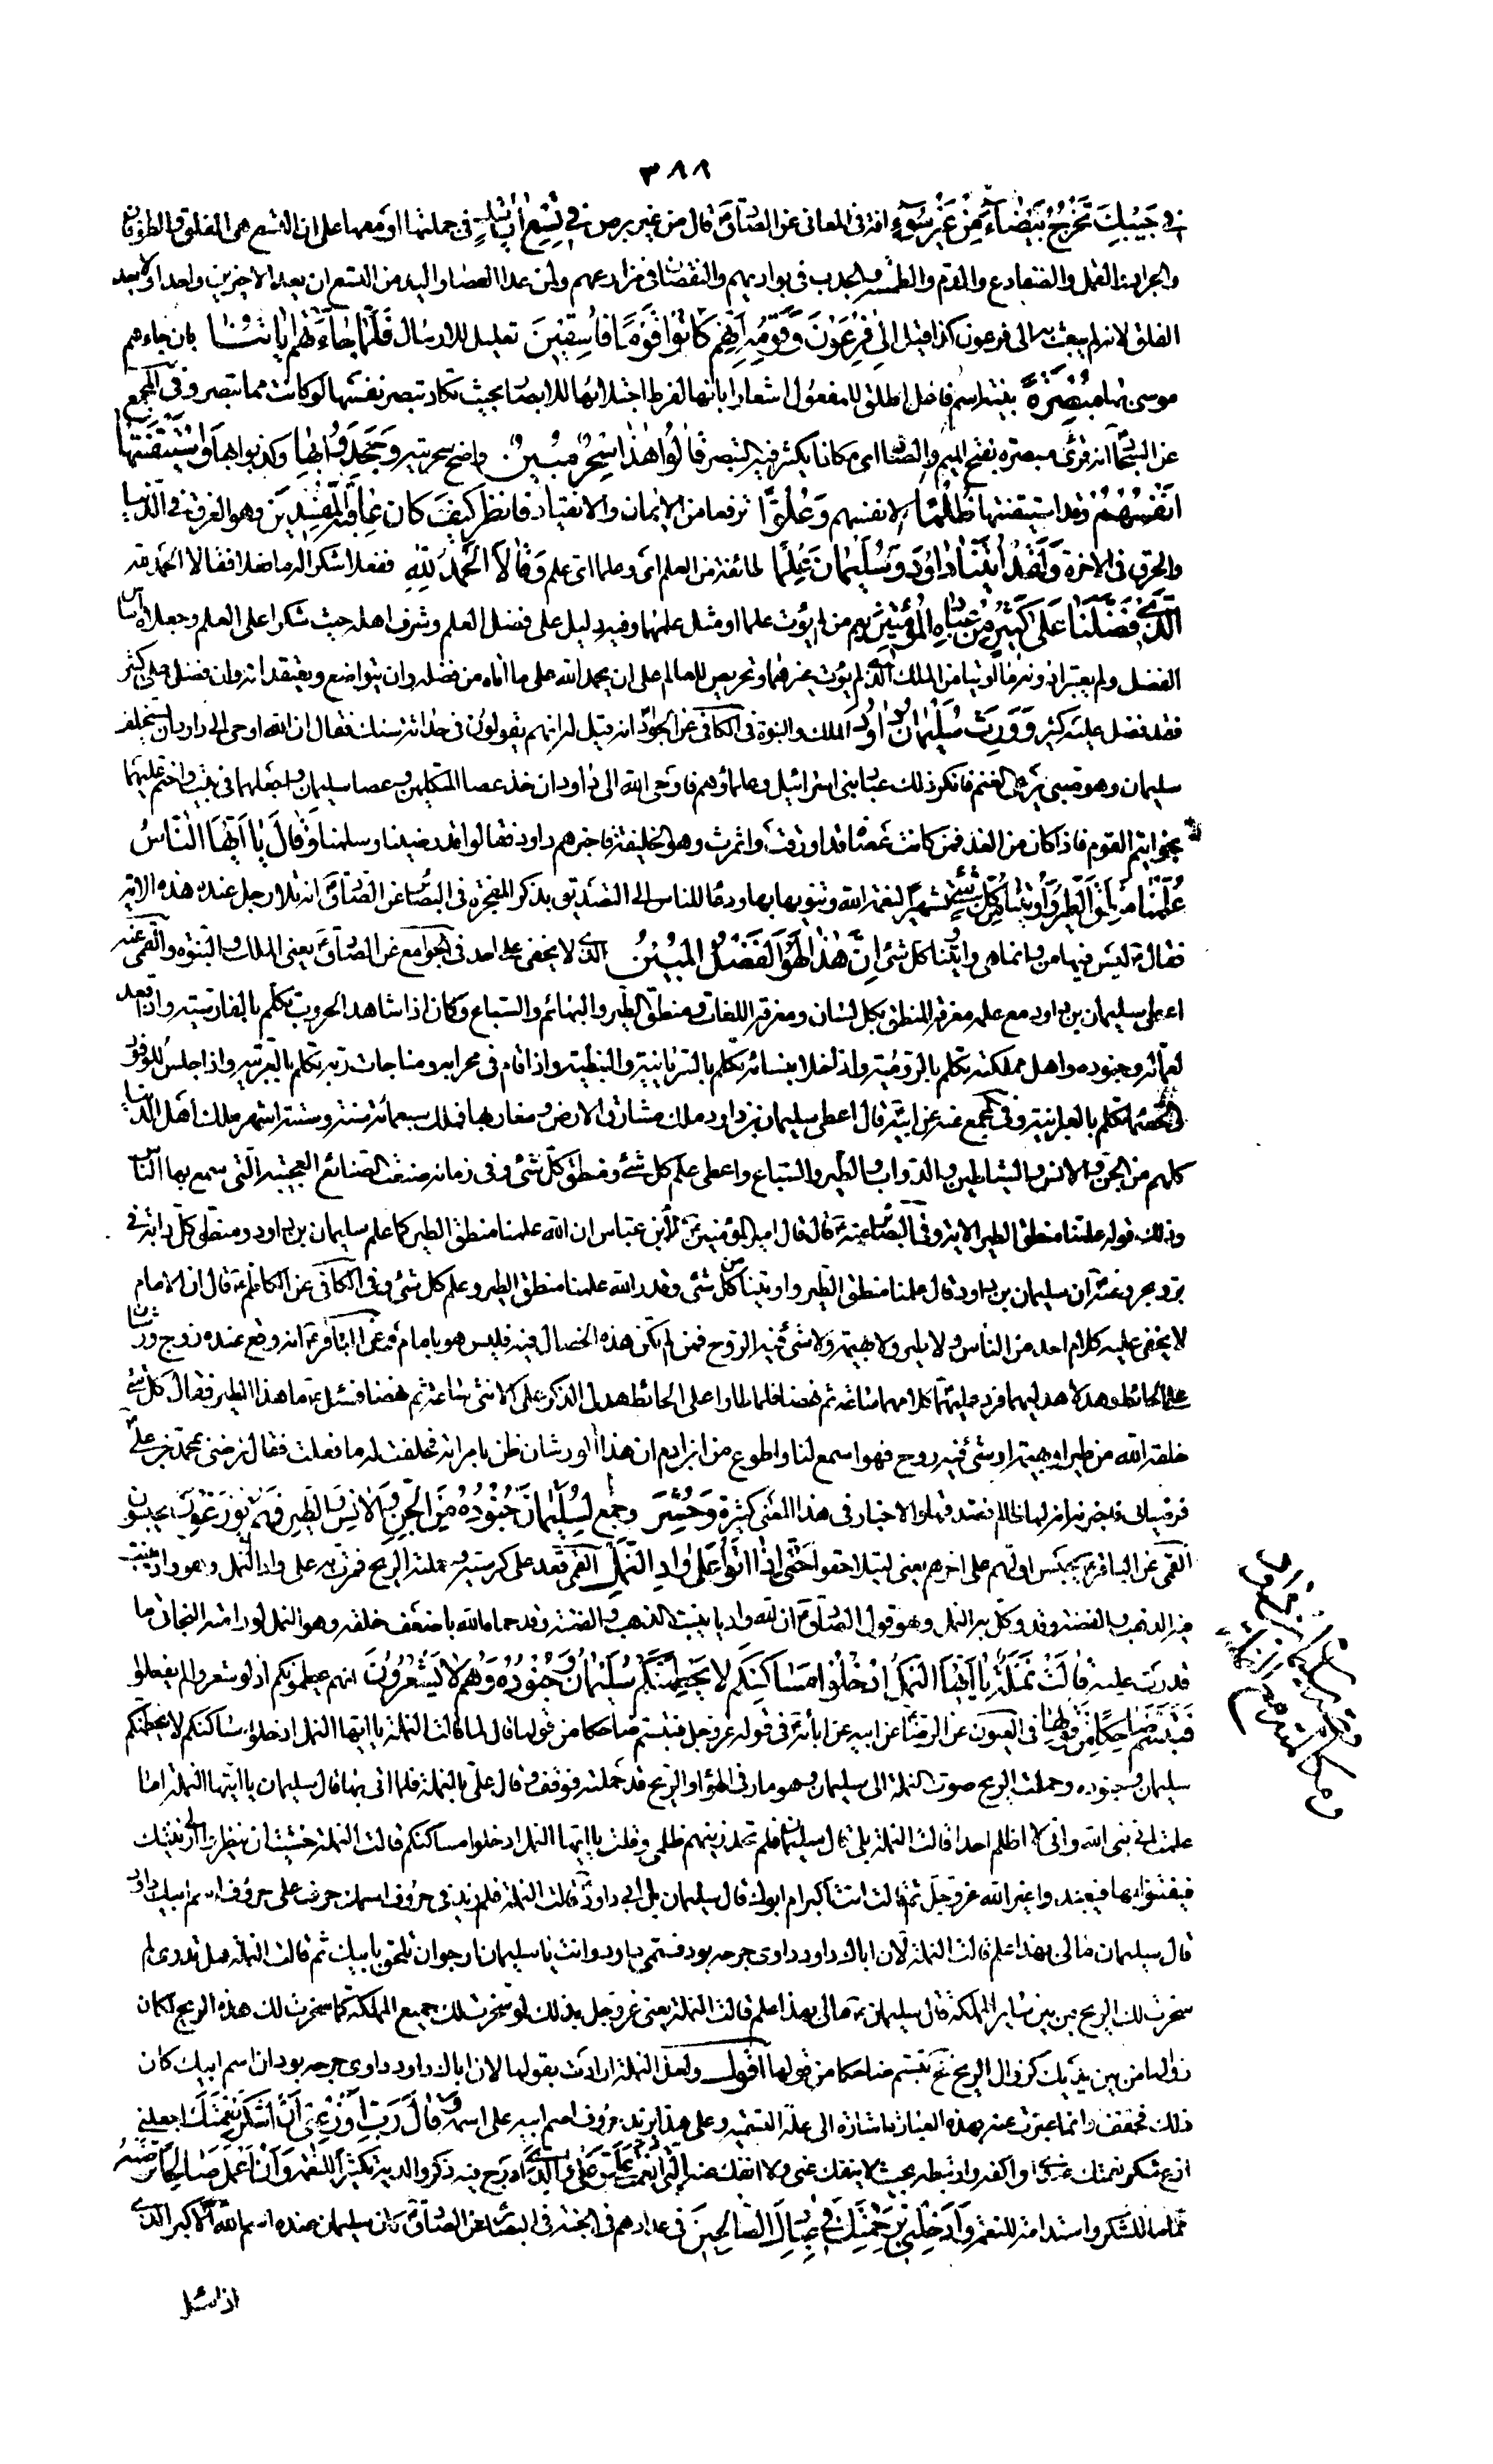 ٣٨٨
في جَيْبِكَ تَخْرُجْ بَيْضَاءَ مِنْ غَيْرِ سُوءٍ افة في المعاني عن الصادق قال من غير برص في تِسْعِ آيَاتٍ في جملتها او معها على ان التسع هي الفلق والطوفان
والجراد والقمل والضفادع والدم والطمسة والجدب في بواديهم والنقصان في مزارعهم ولمن عدا العصا واليد من التسع ان يعد الاخيرين واحدا ولا يعد
الفلق لانه لم يبعث به الى فرعون كذا قيل اِلى فِرْعَوْنَ وَقَوْمِهِ اِنَّهُمْ كَانُوا قَوْمًا فَاسِقِينَ تعليل للارسال فَلَمَّا جَاءَتْهُمْ آيَاتُنَا بان جاءهم
موسى بها مُبْصِرَةً بينة اسم فاعل اطلق للمفعول اشعارا بانها لفرط اجتلائها للابصار بحيث تكاد تبصر نفسها لو كانت مما تبصر وفي المجمع
عن السجاد انه قرئ مبصرة بفتح الميم والصاد اى مكانا يكثر فيه التبصر قَالُوا هٰذَا سِحْرٌ مُبِينٌ واضح سحريته وَجَحَدُوا بِهَا وكذبوا بها وَاسْتَيْقَنَتْهَا
اَنْفُسُهُمْ وقد استيقنتها ظُلْمًا لانفسهم وَعُلُوًّا ترفعا من الايمان والانقياد فانظر كَيْفَ كَانَ عَاقِبَةُ الْمُفْسِدِينَ وهو الغرق في الدنيا
والحرق في الاخرة وَلَقَدْ اٰتَيْنَا دَاوُدَ وَسُلَيْمَانَ عِلْمًا طائفة من العلم اى وعلما اى علم وَقَالَا الْحَمْدُ لِلّٰهِ ففعلا شكرا له ما فعلا فقالا الحمد لله
الَّذِي فَضَّلَنَا عَلَى كَثِيرٍ مِنْ عِبَادِهِ الْمُؤْمِنِينَ يعم من لم يؤت علما او مثل علمهما وفيه دليل على فضل العلم وشرف اهله حيث شكرا على العلم وجعلاه اساس
الفضل ولم يعتبرا دونه ما اوتيا من الملك الذي لم يؤت غيرهما وتحريص للعالم على ان يحمد الله على ما اتاه من فضله وان يتواضع ويعتقد انه وان فضل على كثير
فقد فضل عليه كثير وَوَرِثَ سُلَيْمَانُ دَاوُدَ الملك والنبوة في الكافي عن الجواد انه قيل له انهم يقولون في حداثة سنك فقال ان الله اوحى الى داود ان يستخلف
سليمان وهو صبى يرعى الغنم فانكر ذلك عباد بنى اسرائيل وعلماؤهم فاوحى الله الى داود ان خذ عصا المتكلمين وعصا سليمان واجعلها في بيت واختم عليها
بخواتيم القوم فاذا كان من الغد فمن كانت عصاه قد اورقت واثمرت وهو الخليفة فاخبرهم داود فقالوا قد رضينا وسلمنا وَقَالَ يَا اَيُّهَا النَّاسُ
عُلِّمْنَا مَنْطِقَ الطَّيْرِ وَاُوتِينَا مِنْ كُلِّ شَيْءٍ تشهيرا لنعمة الله وتنويها بها ودعا للناس الى التصديق بذكر المعجزة في البصائر عن الصادق انه تلا رجل عنده هذه الاية
فقال ليس فيها من وانما هى واوتينا كل شئ اِنَّ هٰذَا لَهُوَ الْفَضْلُ الْمُبِينُ الذي لا يخفى على احد في الجوامع عن الصادق يعنى الملك والنبوة والقمى عنه
اعطى سليمان بن داود مع علمه معرفة المنطق بكل لسان ومعرفة اللغات ومنطق الطير والبهائم والسباع وكان اذا شاهد الحروب تكلم بالفارسية واذا قعد
لعماله وجنوده واهل مملكته تكلم بالرومية واذا خلا بنسائه تكلم بالسريانية والنبطية واذا قام في محرابه ومناجات ربه تكلم بالعربية واذا جلس للوفود
والخصماء تكلم بالعبرانية وفي المجمع عنه عن ابيه قال اعطى سليمان بن داود ملك مشارق الارض ومغاربها فملك سبعمائة سنة وستة اشهر ملك اهل الدنيا
كلهم من الجن والانس والشياطين والدواب والطير والسباع واعطى علم كل شئ ومنطق كل شئ وفي زمانه صنعت الصنائع العجيبة التى سمع بها الناس
وذلك قوله علمنا منطق الطير الاية وفي البصائر عنه قال قال امير المؤمنين لابن عباس ان الله علمنا منطق الطير كما علم سليمان بن داود ومنطق كل دابة في
بر وبحر وعنه ان سليمان بن داود قال علمنا منطق الطير واوتينا من كل شئ وقد والله علمنا منطق الطير وعلم كل شئ وفي الكافي عن الكاظم قال ان الامام
لا يخفى عليه كلام احد من الناس ولا طير ولا بهيمة ولا شئ فيه الروح فمن لم تكن هذه الخصال فيه فليس هو بامام وعن الباقر انه وقع عنده زوج ورشان
على الحائط وهدلا هديلهما فرد عليهما كلامهما ساعة ثم نهضا فلما طارا على الحائط هدل الذكر على الانثى ساعة ثم نهضا فسئل ما هذا الطير فقال كل شئ
خلقه الله من طير او بهيمة او شئ فيه روح فهو اسمع لنا واطوع من ابن ادم ان هذا الورشان ظن بامراته فحلفت له ما فعلت فقال ترضى بمحمد بن على
فرضيا بى فاخبرته انه لها ظالم فصدقها والاخبار في هذا المعنى كثيرة وَحُشِرَ وجمع لِسُلَيْمَانَ جُنُودُهُ مِنَ الْجِنِّ وَالْاِنْسِ وَالطَّيْرِ فَهُمْ يُوزَعُونَ يحبسون
القمى عن الباقر يحبس اولهم على اخرهم يعنى ليتلاحقوا حَتَّى اِذَا اَتَوْا عَلَى وَادِ النَّمْلِ القمى قعد على كرسيه وحملته الريح فمرت به على واد النمل وهو واد ينبت
فيه الذهب والفضة وقد وكل به النمل وهو قول الصادق ان لله واديا ينبت الذهب والفضة وقد حماه الله باضعف خلقه وهو النمل لو رامته البخاتى ما
قدرت عليه قَالَتْ نَمْلَةٌ يَا اَيُّهَا النَّمْلُ ادْخُلُوا مَسَاكِنَكُمْ لَا يَحْطِمَنَّكُمْ سُلَيْمَانُ وَجُنُودُهُ وَهُمْ لَا يَشْعُرُونَ انهم يحطمونكم اذ لو شعروا لم يفعلوا
فَتَبَسَّمَ ضَاحِكًا مِنْ قَوْلِهَا في العيون عن الرضا عن ابيه عن ابائه في قوله عز وجل فتبسم ضاحكا من قولها قال لما قالت النملة يا ايها النمل ادخلوا مساكنكم لا يحطمنكم
سليمان وجنوده وحملت الريح صوت النملة الى سليمان وهو مار في الهواء والريح قد حملته فوقف وقال على بالنملة فلما اتى بها قال سليمان يا ايتها النملة اما
علمت انى نبى الله وانى لا اظلم احدا قالت النملة بلى قال سليمان فلم تحذرينهم ظلمى وقلت يا ايها النمل ادخلوا مساكنكم قالت النملة خشيت ان ينظروا الى زينتك
فيفتتنوا بها فيعبدوا غير الله عز وجل ثم قالت انت اكبر ام ابوك قال سليمان بل ابى داود قالت النملة فلم زيد في حروف اسمك حرف على حروف اسم ابيك داود
قال سليمان مالى بهذا علم قالت النملة لان اباك داود داوى جرحه بود فسمى داود وانت يا سليمان ارجو ان تلحق بابيك ثم قالت النملة هل تدرى لم
سخرت لك الريح من بين سائر المملكة قال سليمان مالى بهذا علم قالت النملة يعنى عز وجل بذلك لو سخرت لك جميع المملكة كما سخرت لك هذه الريح لكان
زوالها من بين يديك كزوال الريح فح تبسم ضاحكا من قولها اقول ولعل النملة ارادت بقولها لان اباك داود داوى جرحه بود ان اسم ابيك كان
ذلك فخفف وانما عبرت عنه بهذه العبارة اشارة الى علة التسمية وعلى هذا يزيد حروف اسم ابيه على اسمه وَقَالَ رَبِّ اَوْزِعْنِي اَنْ اَشْكُرَ نِعْمَتَكَ اجعلنى
ازع شكر نعمتك عندى اى اكفه وارتبطه بحيث لا ينفك عنى ولا انفك عنه الَّتِي اَنْعَمْتَ عَلَيَّ وَعَلَى وَالِدَيَّ ادرج فيه ذكر والديه تكثيرا للنعمة وَاَنْ اَعْمَلَ صَالِحًا تَرْضٰهُ
تماما للشكر واستدامة للنعمة وَاَدْخِلْنِي بِرَحْمَتِكَ فِي عِبَادِكَ الصَّالِحِينَ في عدادهم في الجنة في البصائر عن الصادق كان سليمان عنده اسم الله الاكبر الذي
اذا سئل